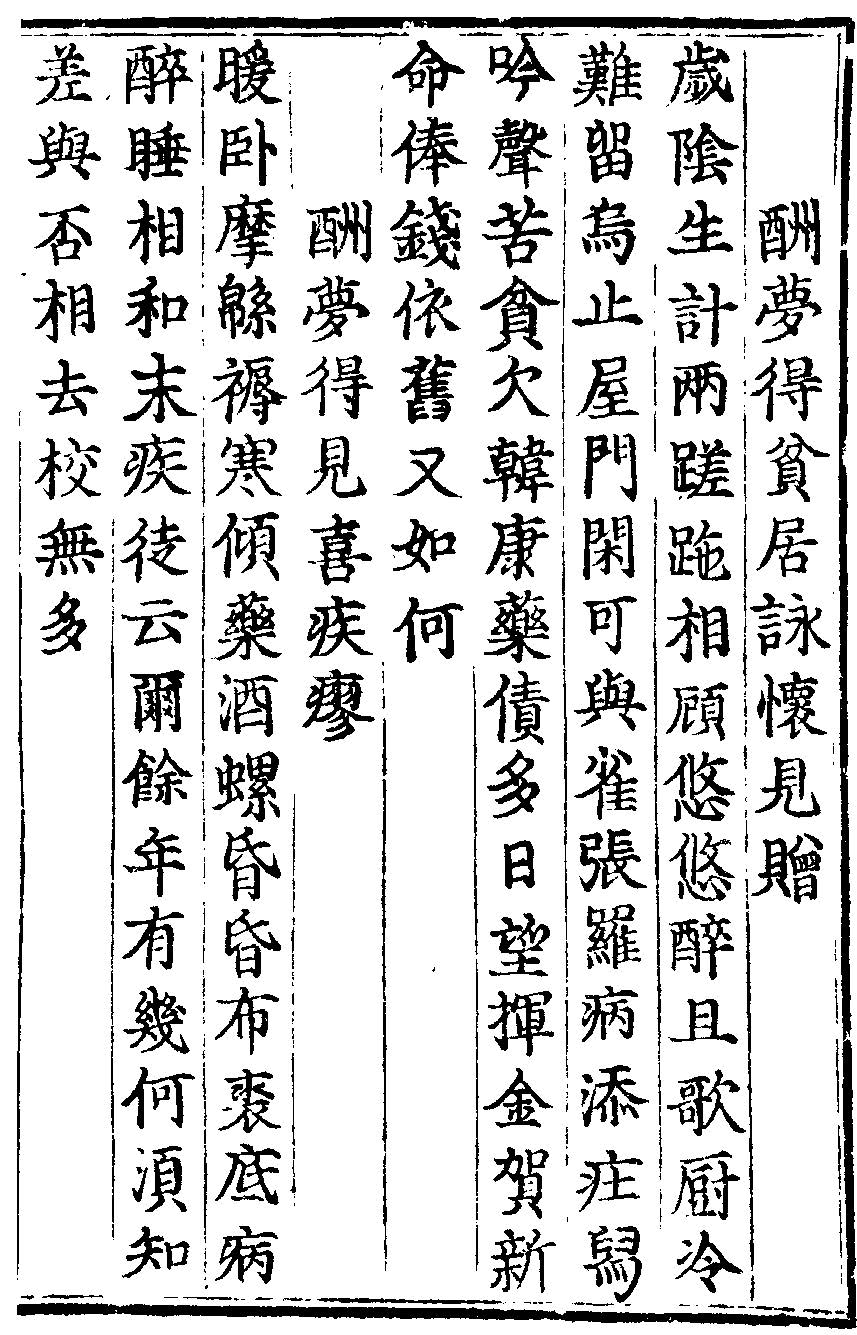 酬夢得貧居詠懷見贈
歲陰生計兩蹉跎相顧悠悠醉且歌廚冷
難留烏止屋門閑可與雀張羅病添莊舄
吟聲苦貧欠韓康藥債多日望揮金賀新
命俸錢依舊又如何
酬夢得見喜疾瘳
暖卧摩緜褥寒傾藥酒螺昏昏布裘底病
醉睡相和末疾徒云爾餘年有幾何須知
差與否相去校無多